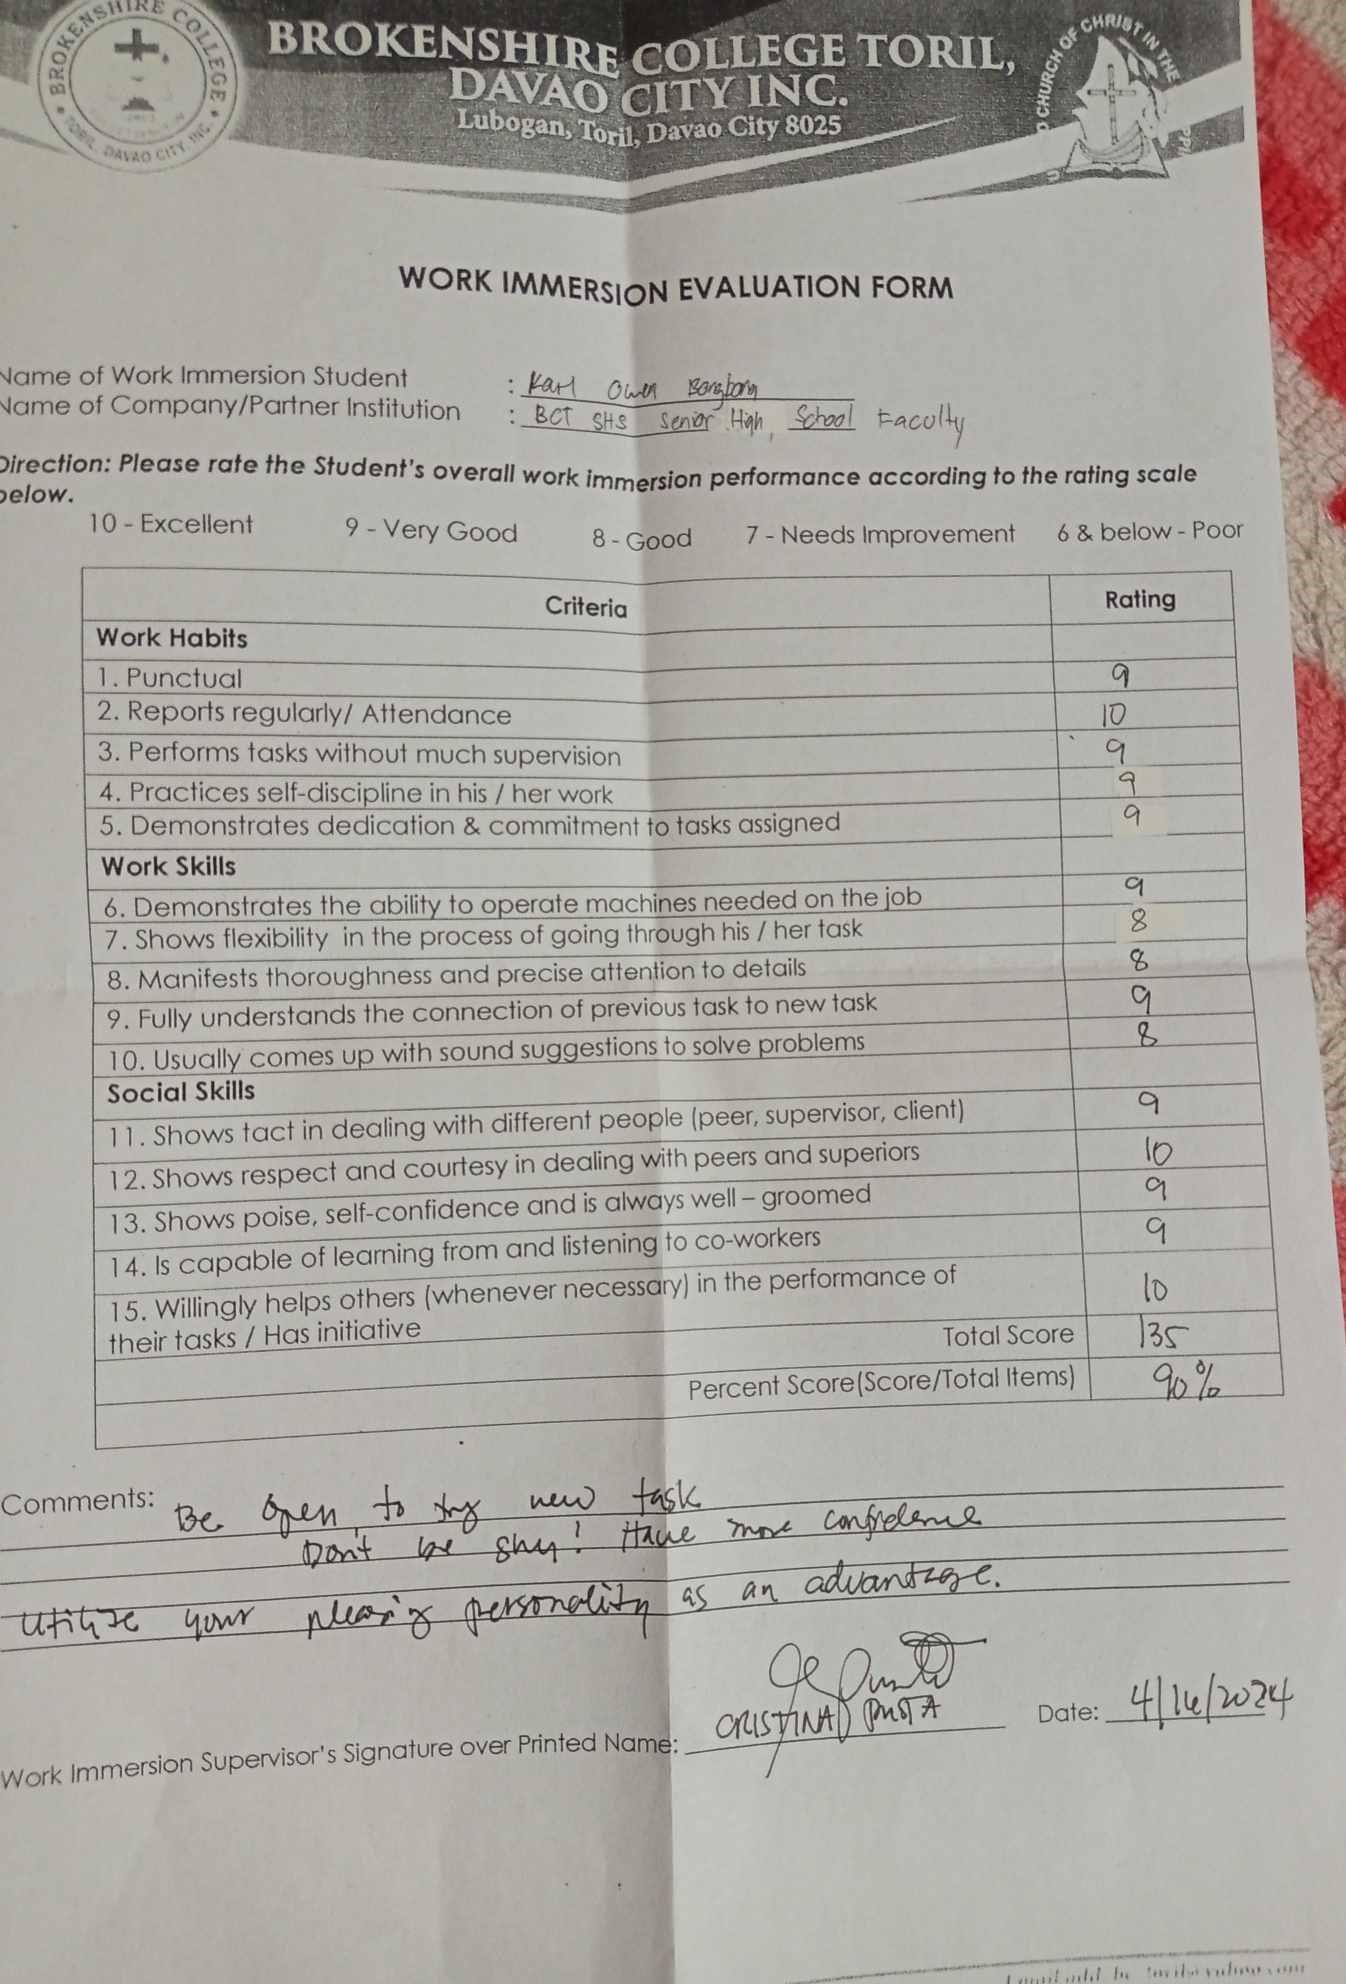 BROKENSHIRE COLLEGE
TORIL, DAVAO CITY INC.
BROKENSHIRE COLLEGE TORIL,
DAVAO CITY INC.
Lubogan, Toril, Davao City 8025
CHURCH OF CHRIST IN THE
WORK IMMERSION EVALUATION FORM
Name of Work Immersion Student : Karl Owen Bangbang
Name of Company/Partner Institution : BCT SHS Senior High School Faculty
Direction: Please rate the Student's overall work immersion performance according to the rating scale
below.
10 - Excellent 9 - Very Good 8 - Good 7 - Needs Improvement 6 & below - Poor
Criteria Rating
Work Habits
1. Punctual 9
2. Reports regularly/ Attendance 10
3. Performs tasks without much supervision 9
4. Practices self-discipline in his / her work 9
5. Demonstrates dedication & commitment to tasks assigned 9
Work Skills
6. Demonstrates the ability to operate machines needed on the job 9
7. Shows flexibility in the process of going through his / her task 8
8. Manifests thoroughness and precise attention to details 8
9. Fully understands the connection of previous task to new task 9
10. Usually comes up with sound suggestions to solve problems 8
Social Skills
11. Shows tact in dealing with different people (peer, supervisor, client) 9
12. Shows respect and courtesy in dealing with peers and superiors 10
13. Shows poise, self-confidence and is always well – groomed 9
14. Is capable of learning from and listening to co-workers 9
15. Willingly helps others (whenever necessary) in the performance of
their tasks / Has initiative 10
Total Score 135
Percent Score(Score/Total Items) 90%
Comments: Be open to try new task
Don't be shy! Have more confidence
utilize your pleasing personality as an advantage.
CRISTINA
Work Immersion Supervisor's Signature over Printed Name:
Date: 4/16/2024